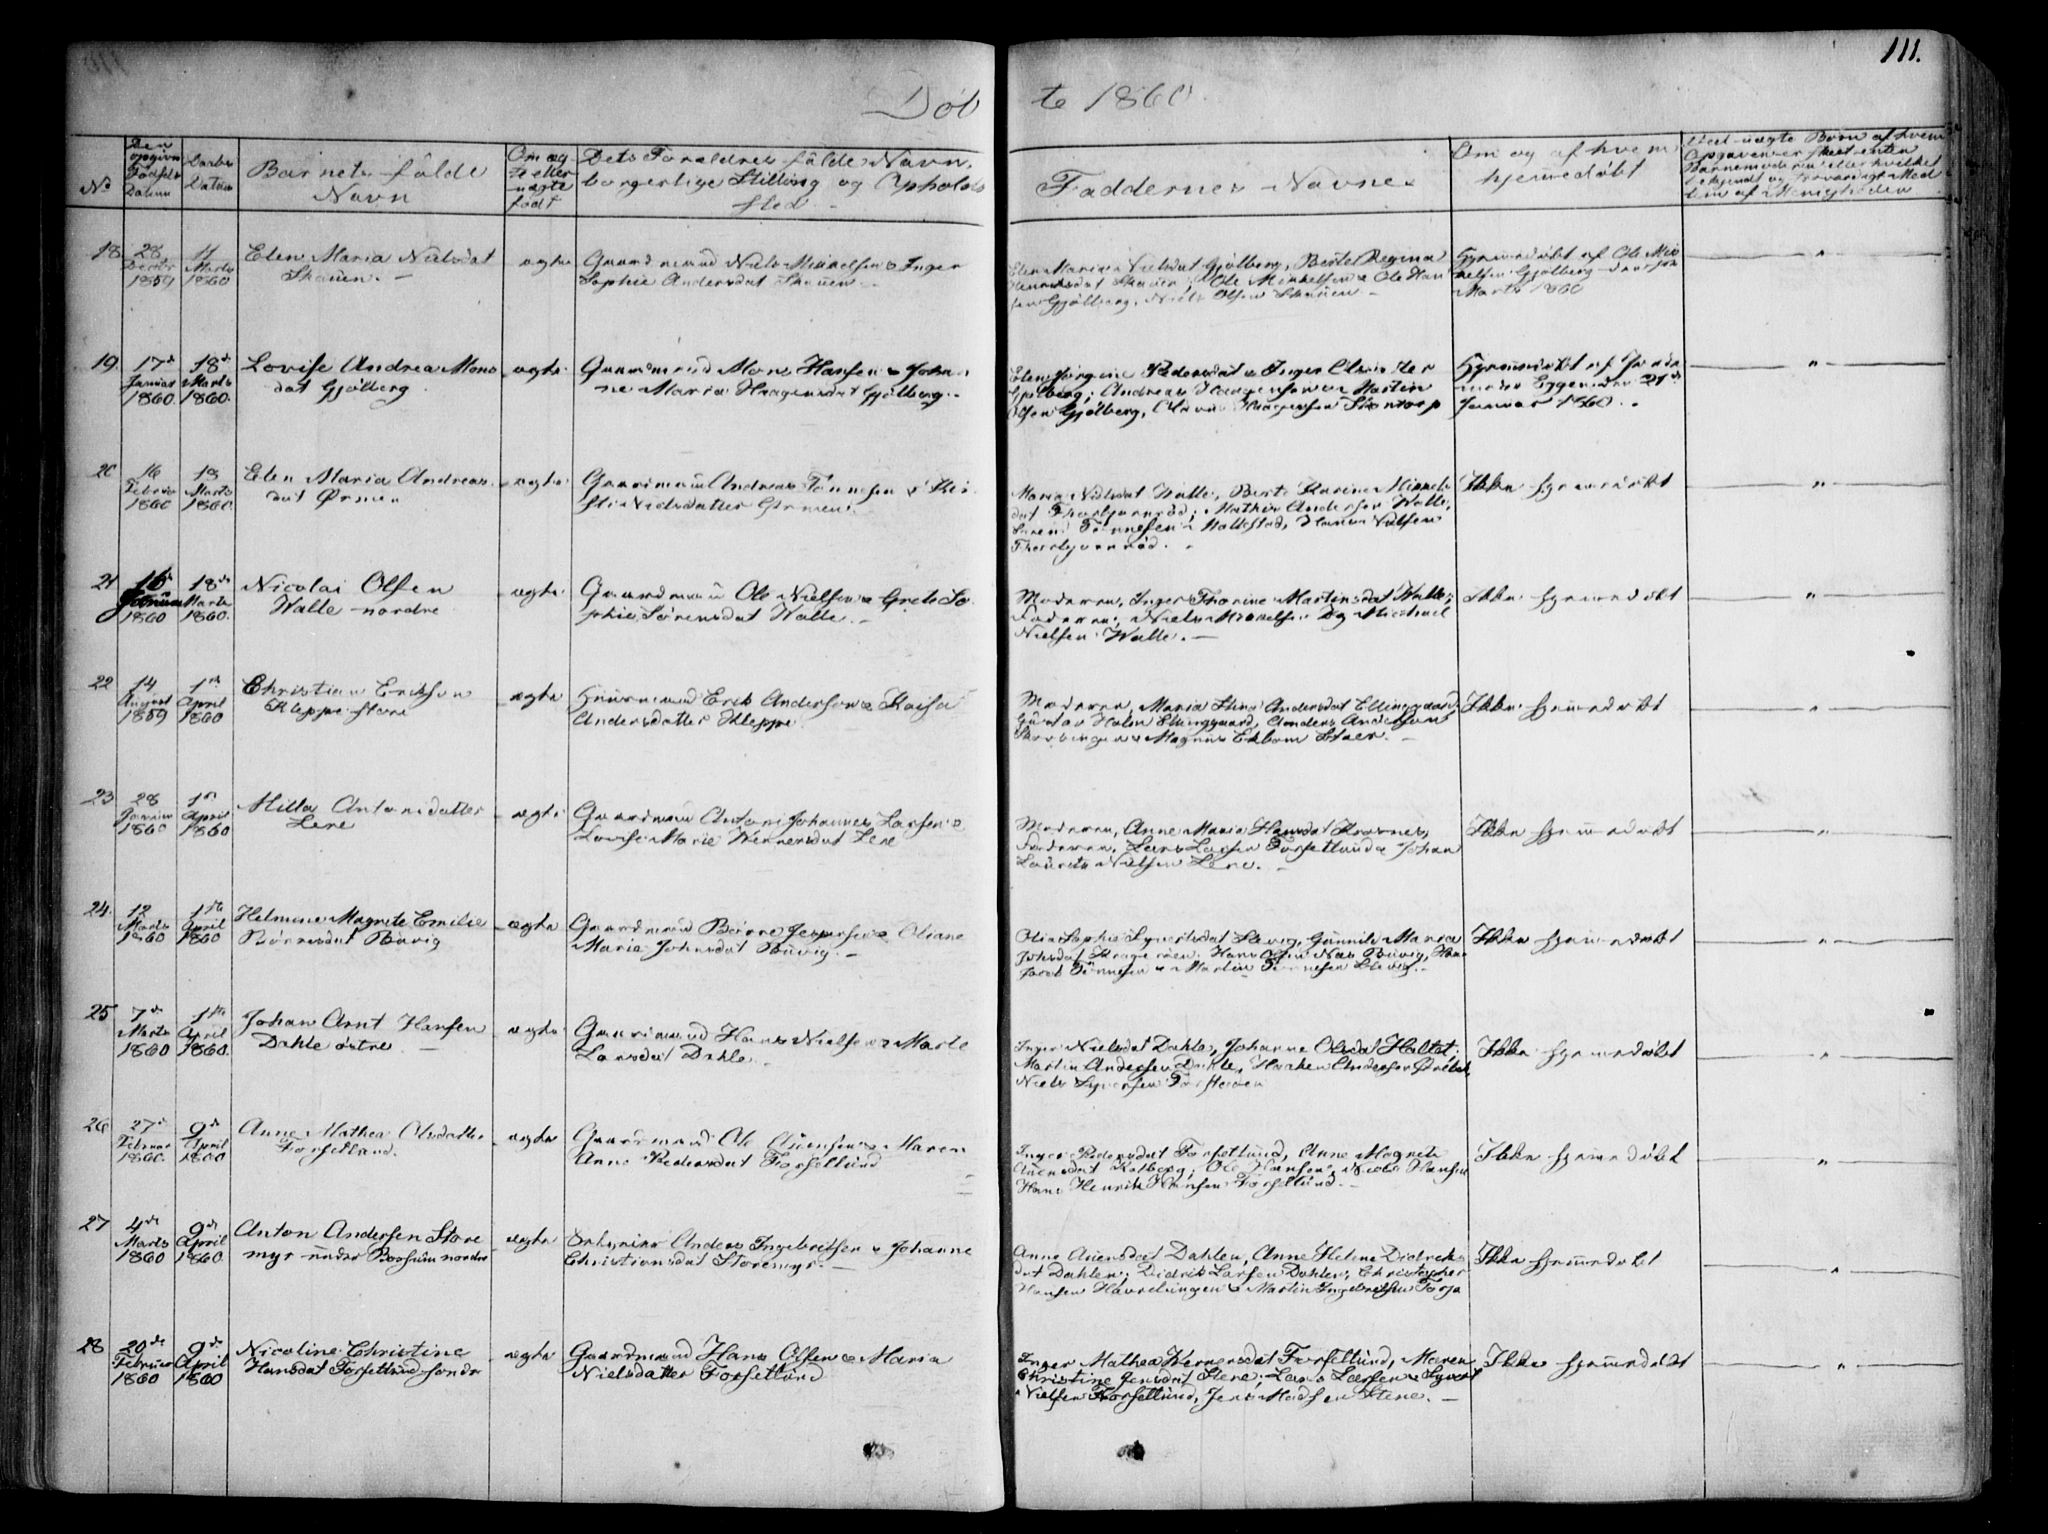 111.
Døb
te 1860.
No
Den opgivne Fødsels Datum
Daabs Datum
Barnets fulde
Navn
Om ægte eller uægte født
Dets Forældres fulde Navn,
borgerlige Stilling og Opholds
sted.
Faddernes Navne.
Om og af hvem
hjemmedøbt
18
28
Decbr
1859
11
Marts
1860
Elen Maria Nielsdat
Skauen. —
ægte
Gaardmand Niels Mikkelsen & Inger
Sophie Andersdat Skauen —
Elen Maria Nielsdat Gjølberg, Berte Regina
Skauen; Ole Mikkelsen & Ole Han
sen Gjølberg, Niels Olsen Skauen —
Hjemmedøbt af Ole Mik
kelsen Gjølberg
Marts 1860
19
17de
Januar
1860.
18de
Marts
1860.
Lovise Andrea Mons
dat Gjølberg.
ægte
Gaardmand Mons Hansen & Johan
ne Maria Haagensdat Gjølberg. —
Elen Jørgine Pedersdat & Inger Olsdatter
Gjølberg; Andreas Haagensen & Martin
Olsen Gjølberg, Haagensen
Hjemmedøbt af Jorde
moder Eggen den 21de
Januar 1860. —
20
16
Februar
1860
18
Marts
1860.
Elen Maria Andreas
dat Ørmen
ægte
Gaardmand Andreas Tønnesen & Kir
sti Nielsdatter Ørmen.
Maria Nielsdat Walle, Berte Karine Mikkels
dat Thorbjørnrød; Mathis Andersen Walle,
Søren Tønnesen Hallestad, Nielsen
Thorbjørnrød. —
Ikke hjemmedøbt
21
16de
Februar
1860
18de
Marts
1860.
Nicolai Olsen
Walle nordre
ægte
Gaardmand Ole Nielsen & Grete So
phie Sørensdat Walle. —
Moderen, Inger Thorine Martinsdat Walle;
Faderen, Niels Mikkelsen og Michael
Nielsen Walle. —
Ikke hjemmedøbt
22
14
August
1859
1ste
April
1860
Christian Eriksen
Kleppe store
ægte
Huusmand Erik Andersen & Kaisa
Andersdatter Kleppe.
Moderen, Maria Stina Andersdat Elinggaard,
Gustav Halin Elinggaard, Anders Andersen
Magnus Ekbom Staer. —
Ikke hjemmedøbt
23
28
Januar
1860
1ste
April
1860
Milla Antonsdatter
Lere
ægte
Gaardmand Anton Johannes Larsen &
Lovise Marie Wernersdat Lere
Moderen, Anne Maria Hansdat Kraknes,
Faderen, Lars Larsen Forsetlund & Johan
Laurits Nielsen Lere. —
Ikke hjemmedøbt
24.
12
Marts
1860
1ste
April
1860
Helmine Magrete Emilie
Børresdat Buvig
ægte
Gaardmand Børre Jespersen & Oliane
Marie Johnsdat Buvig. —
Olia Sophie Syvertsdat Slevig, Gunnild Maria
Johsdat Krageroen. Hans Olsen Næs Buvig,
Jacob Tønnesen & Martin Tønnesen Slevig. —
Ikke hjemmedøbt
25
7de
Marts
1860
1ste
April
1860.
Johan Arnt Hansen
Dahle østre —
ægte
Gaardmand Hans Nielsen & Marte
Larsdat Dahle —
Inger Nielsdat Dahle, Johanne Olsdat Holtet;
Martin Andersen Dahle, Haaken Andersen
Niels Syversen
Ikke hjemmedøbt
26
27de
Februar
1860.
9de
April
1860
Anne Mathea Olsdatter
Forsetlund.
ægte
Gaardmand Ole Auensen & Maren
Anne Pedersdat Forsetlund
Inger Pedersdat Forsetlund, Anne Magnete
Auensdat Kolberg; Ole Hansen, Niels Hansen
Hans Henrik Hansen Forsetlund. —
Ikke hjemmedøbt
27
4de
Marts
1860
9de
April
1860.
Anton Andersen Store
myr under Borsum nordre
ægte
Anders Ingebritsen & Johanne
Christiansdat Storemyr. —
Anne Auensdat Dahlen, Anne Helene Didriks
dat Dahlen; Didrik Larsen Dahlen, Christopher
Hansen & Martin Ingebretsen
Ikke hjemmedøbt
28
20de
Februar
1860
9de
April
1860
Nicoline Christine
Hansdat Forsetlund søndre
ægte
Gaardmand Hans Olsen & Maria
Nielsdatter Forsetlund
Inger Mathea Wernersdat Forsetlund, Maren
Christine Jensdat Stene; Lars Larsen & Syvert
Nielsen Forsetlund, Jens Madsen Stene. —
Ikke hjemmedøbt